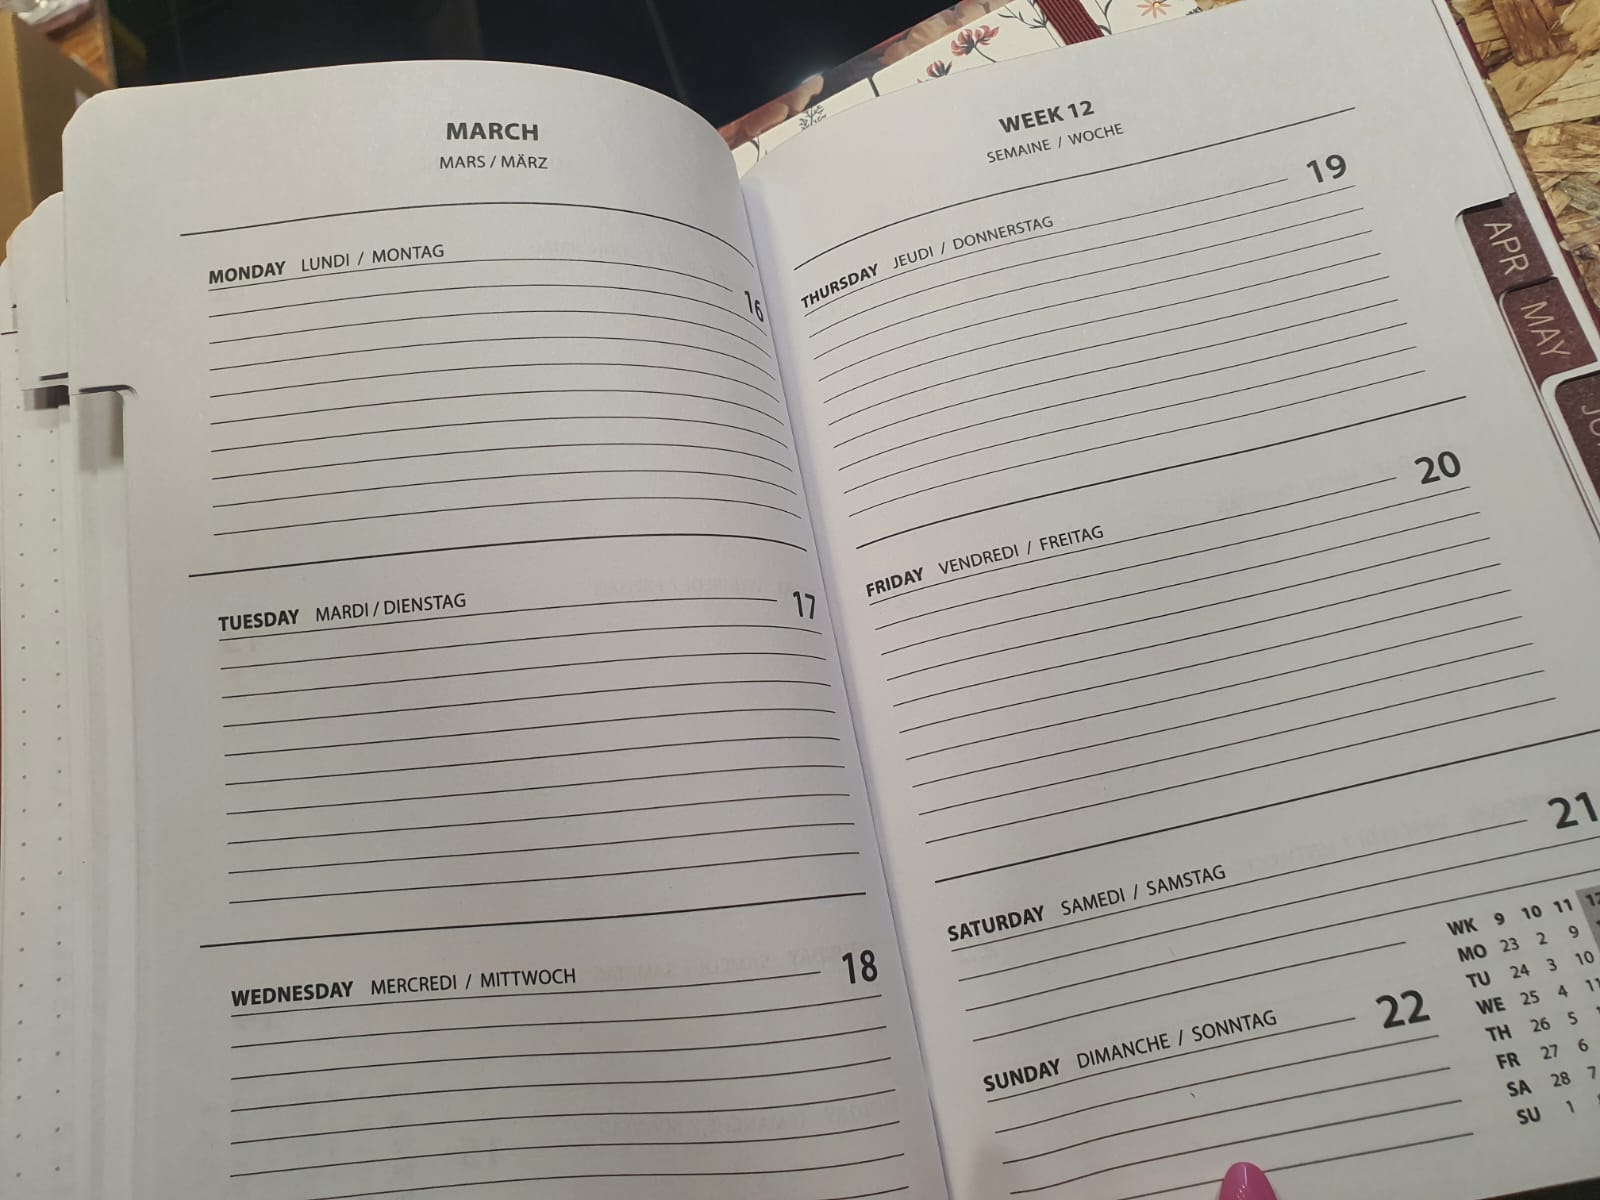 MARCH
MARS / MÄRZ
MONDAY LUNDI / MONTAG
16
TUESDAY MARDI / DIENSTAG
17
WEDNESDAY MERCREDI / MITTWOCH
18
WEEK 12
SEMAINE / WOCHE
19
THURSDAY JEUDI / DONNERSTAG
20
FRIDAY VENDREDI / FREITAG
21
SATURDAY SAMEDI / SAMSTAG
22
SUNDAY DIMANCHE / SONNTAG
WK 9 10 11 12
MO 23 2 9
TU 24 3 10
WE 25 4 11
TH 26 5
FR 27 6
SA 28 7
SU 1
APR
MAY